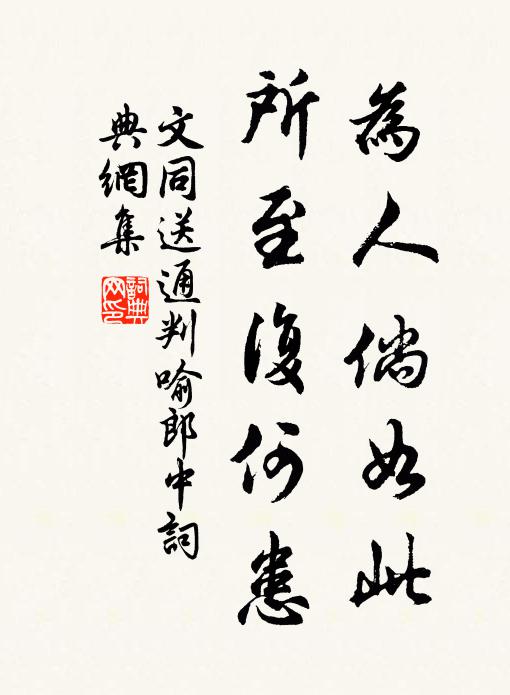 為人倘如此
所至復何患
文同送通判喻郎中詞
典網集
詞典網印